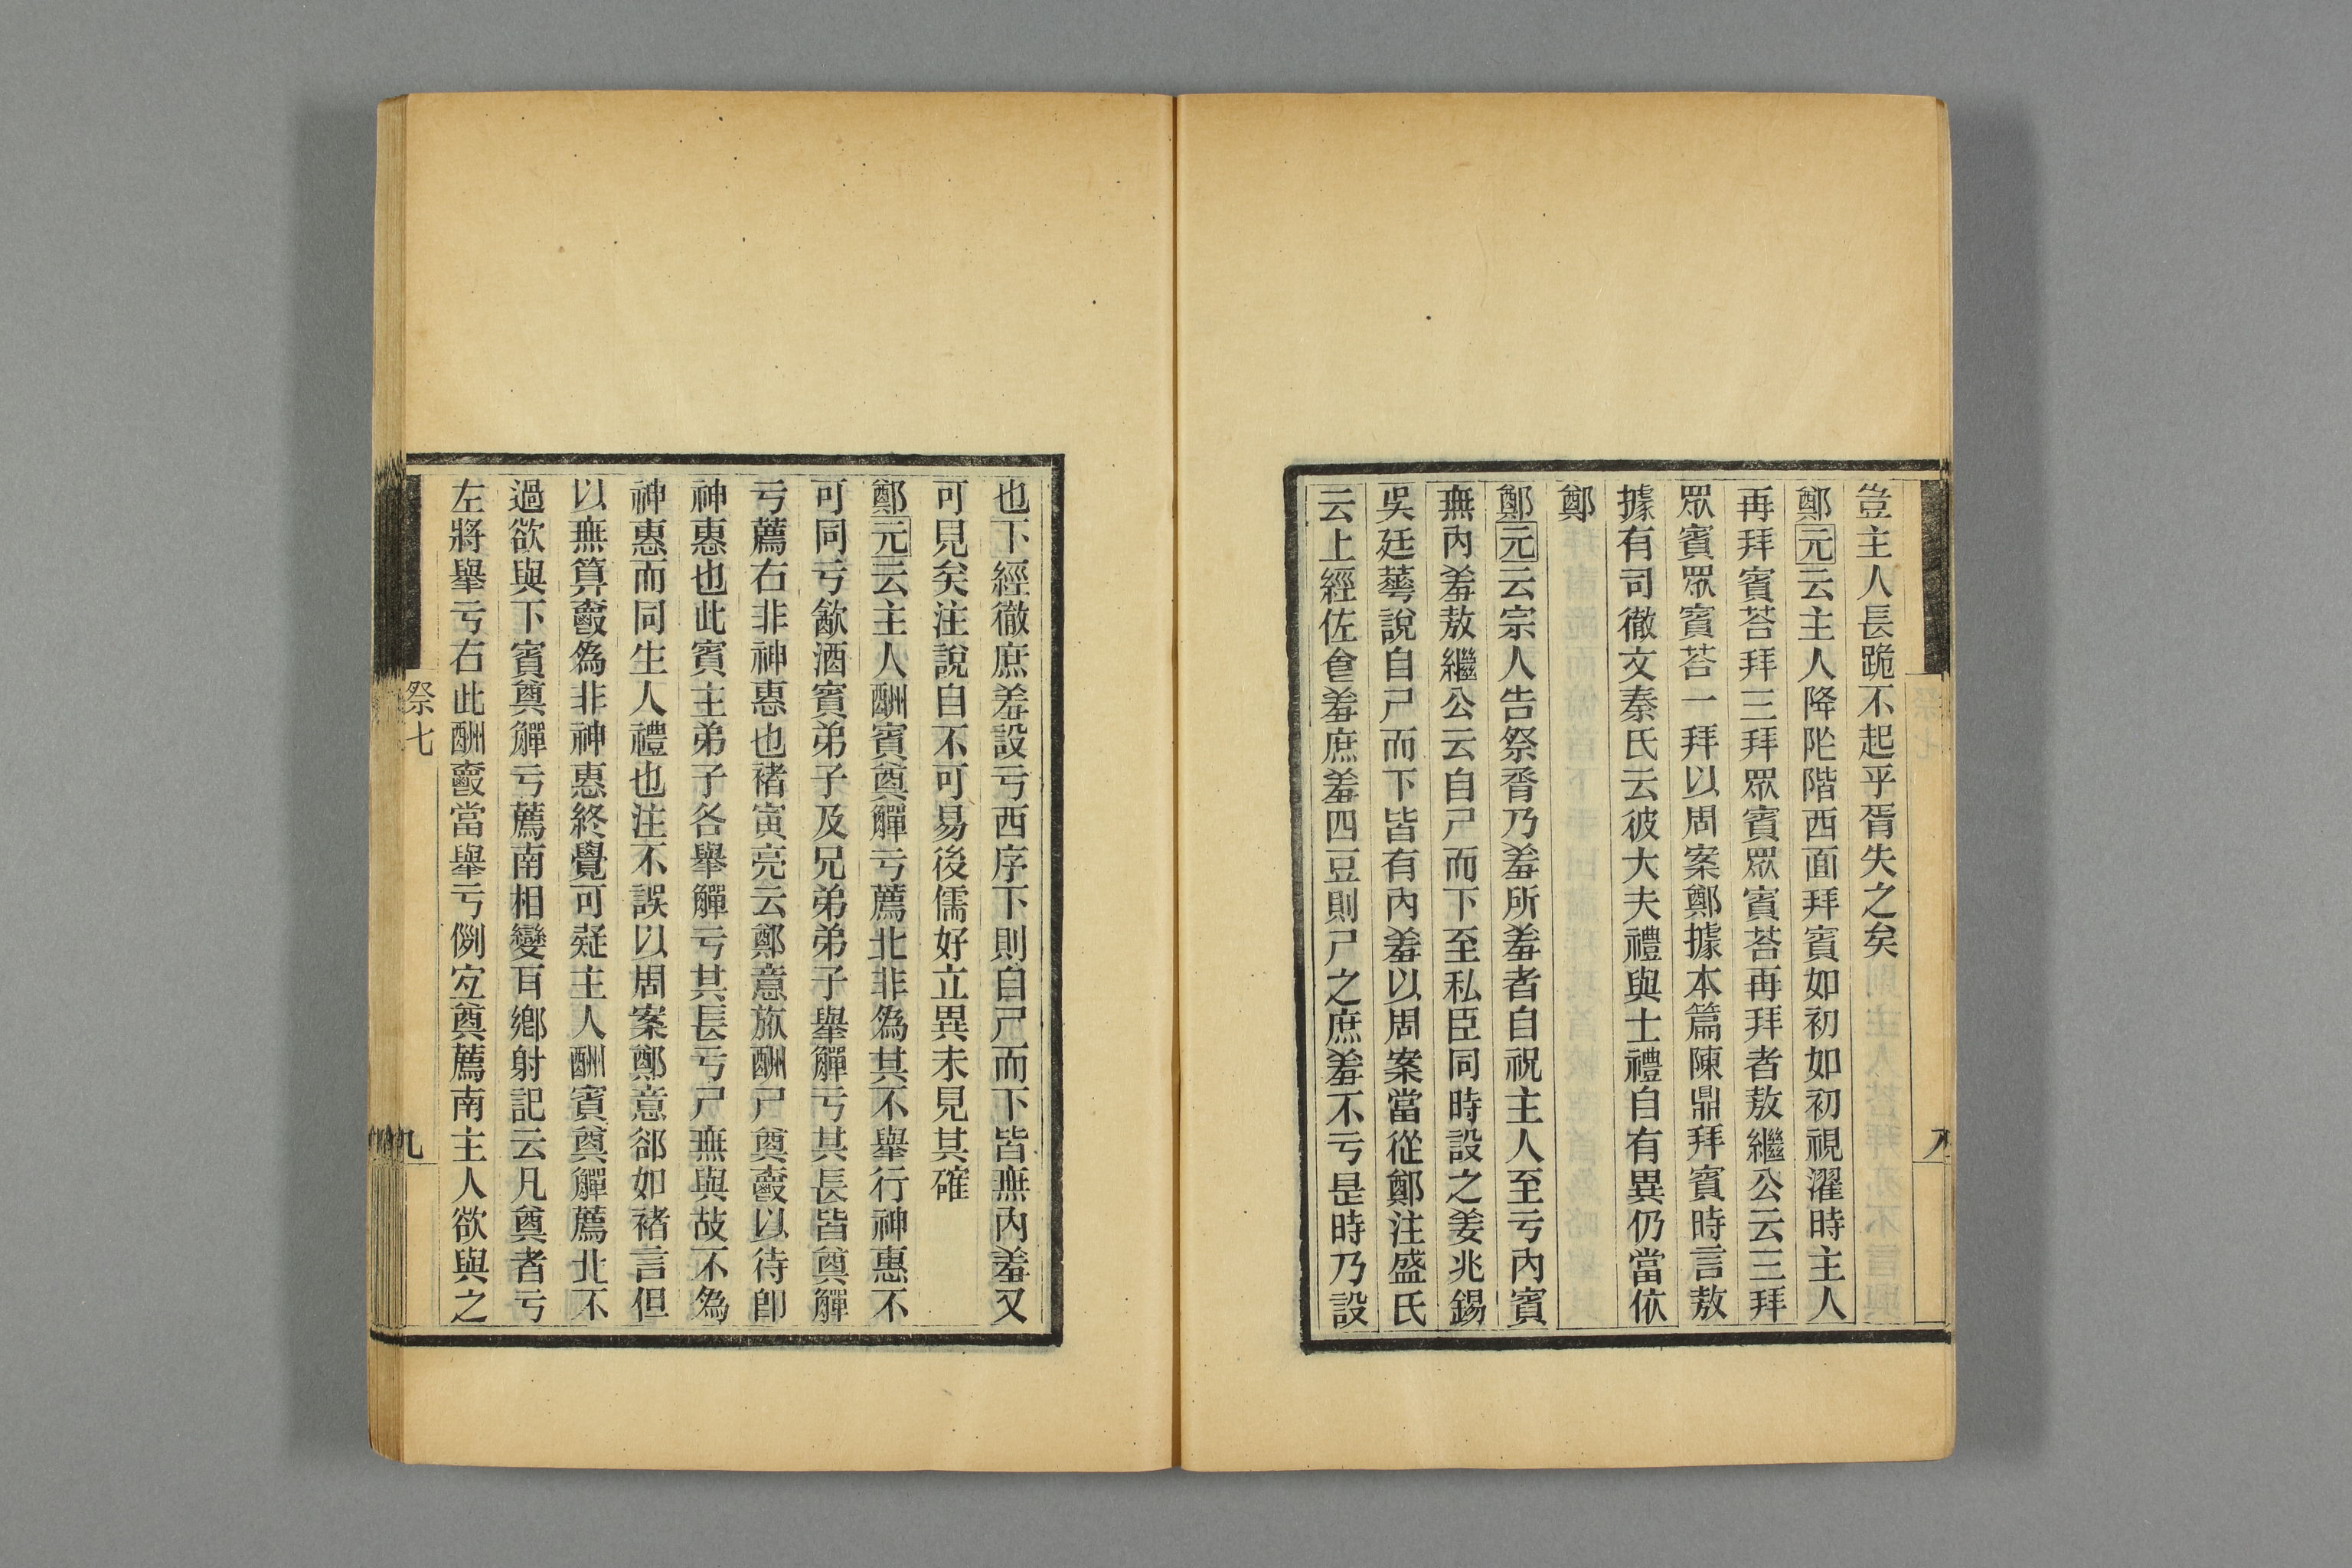 豈主人長跪不起乎胥失之矣
鄭元云主人降阼階西面拜賓如初如初視濯時主人
再拜賓荅拜三拜眾賓眾賓荅再拜者敖繼公云三拜
眾賓眾賓荅一拜以周案鄭據本篇陳鼎拜賓時言敖
據有司徹文秦氏云彼大夫禮與士禮自有異仍當依
鄭
鄭元云宗人告祭脀乃羞所羞者自祝主人至亏內賓
無內羞敖繼公云自尸而下至私臣同時設之姜兆錫
吳廷華說自尸而下皆有內羞以周案當從鄭注盛氏
云上經佐食羞庶羞四豆則尸之庶羞不亏是時乃設
八
也下經徹庶羞設亏西序下則自尸而下皆無內羞又
可見矣注說自不可易後儒好立異未見其確
鄭元云主人酬賓奠觶亏薦北非為其不舉行神惠不
可同亏飲酒賓弟子及兄弟弟子舉觶亏其長皆奠觶
亏薦右非神惠也褚寅亮云鄭意旅酬尸奠爵以待卽
神惠也此賓主弟子各舉觶亏其長亏尸無與故不為
神惠而同生人禮也注不誤以周案鄭意郤如褚言但
以無算爵為非神惠終覺可疑主人酬賓奠觶薦北不
過欲與下賓奠觶亏薦南相變耳鄉射記云凡奠者亏
左將舉亏右此酬爵當舉亏例宜奠薦南主人欲與之
祭七
九